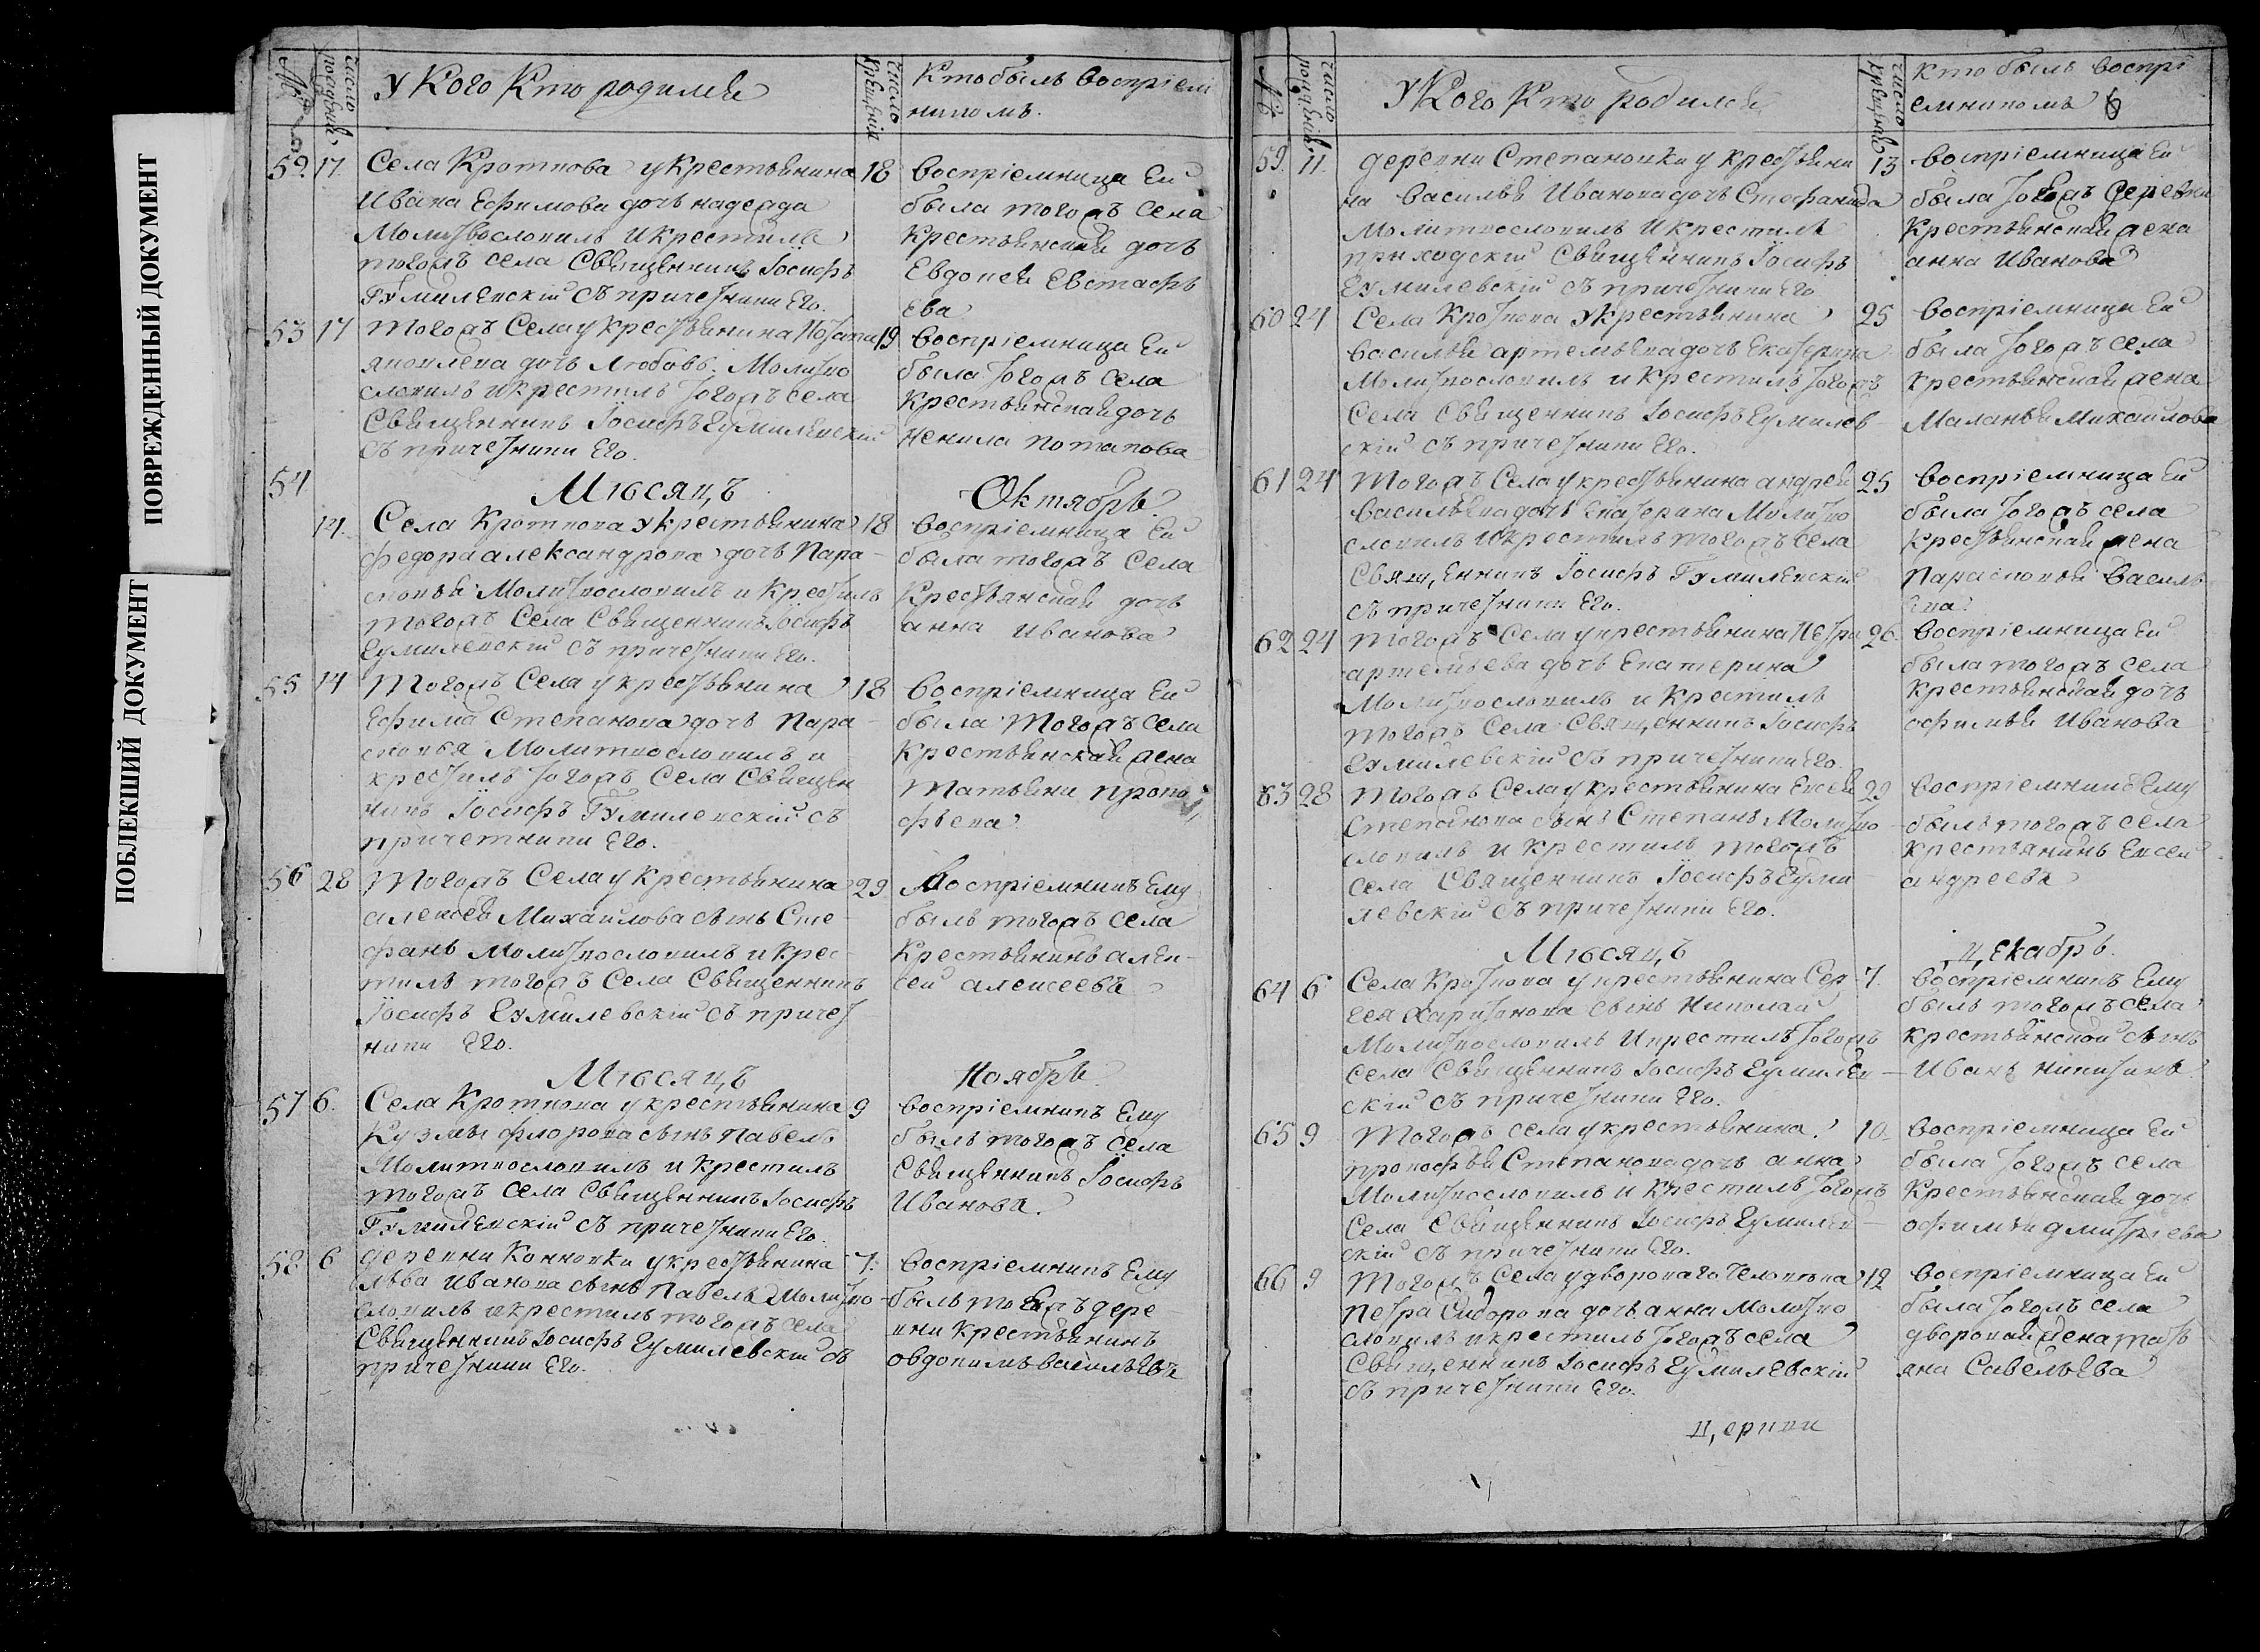 ПОВРЕЖДЕННЫЙ ДОКУМЕНТ
ПОБЛЕКШИЙ ДОКУМЕНТ
№
число рождений
У Кого Кто родился
число крещенія
Кто былъ воспріем
никомъ.
52. 17. Села Кроткова у крестьянина 18
Ивана Ефимова дочь надежда
Молитвословилъ и крестилъ
тогожъ села Священникъ Іосифъ
Гумилевскій съ причетники Его.
воспріемница Ей
была тогожъ села
крестьянская дочь
Евдокея Евстафь
ева
53 17 тогожъ Села у крестьянина Потапа 19
яковлева дочь Любовь. Молитво
словилъ и крестилъ тогожъ села
Священникъ Іосифъ Гумилевскій
съ причетники Его.
воспріемница Ей
была тогожъ села
крестьянская дочь
Ненила потапова
54
Мѣсяцъ Октябрь.
14. Села Кроткова у крестьянина 18
федора александрова дочь Пара-
сковья Молитвословилъ и крестилъ
тогожъ Села Священникъ Іосифъ
Гумилевскій съ причетники Его.
воспріемница Ей
была тогожъ села
Крестьянская дочь
анна иванова
55 14 тогожъ Села у крестьянина 18
Ефима Степанова дочь Пара-
сковья Молитвословилъ и
крестилъ тогожъ Села Священ
никъ Іосифъ Гумилевскій съ
причетники Его.
воспріемница Ей
была тогожъ села
крестьянская жена
татьяна проко
фьева
56 28 тогожъ Села у крестьянина 29
алексея Михаилова сынъ Сте-
фанъ Молитвословилъ и крес-
тилъ тогожъ Села Священникъ
Іосифъ Гумилевскій съ причет
ники Его.
Воспріемникъ Ему
былъ тогожъ села
Крестьянинъ алек-
сей алексеевъ
Мѣсяцъ Ноябрь.
57 6. Села Кроткова у крестьянина 9
Кузмы флорова сынъ павелъ
Молитвословилъ и крестилъ
тогожъ села Священникъ Іосифъ
Гумилевскій съ причетники Его.
воспріемникъ Ему
былъ тогожъ села
Священникъ Іосифъ
Ивановъ.
58 6 деревни Конновки у крестьянина 7.
льва Иванова сынъ Павелъ Молитво-
словилъ и крестилъ тогожъ села
Священникъ Іосифъ Гумилевскій съ
причетники Его.
воспріемникъ Ему
былъ тоежъ дере
вни крестьянинъ
овдокимъ васильевъ
№
число рожденій
У Кого Кто родился
число крещенія
кто былъ воспрі
емникомъ 6
59. 11. деревни Степановки у крестьяни 13
на Василья Иванова дочь Стефанида
Молитвословилъ и крестилъ
приходскій Священникъ Іосифъ
Гумилевскій съ причетники Его
воспріемница Ей
была тоежъ деревни
Крестьянская жена
анна Иванова
60 24 Села Кроткова у крестьянина 25
Василья артемьева дочь Екатерина
Молитвословилъ и крестилъ тогожъ
Села Священникъ Іосифъ Гумилев
скій съ причетники Его.
воспріемница Ей
была тогожъ села
крестьянская жена
Маланья Михаилова
61 24 тогожъ Села у крестьянина андрея 25
Васильева дочь Екатерина Молитво
словилъ и крестилъ тогожъ села
Священникъ Іосифъ Гумилевскій
съ причетники Его.
воспріемница Ей
была тогожъ села
крестьянская жена
Парасковья Василь
ева
62 24 тогожъ Села у крестьянина Петра 26.
артемьева дочь Екатерина
Молитвословилъ и крестилъ
тогожъ Села Священникъ Іосифъ
Гумилевскій съ причетники Его.
воспріемница Ей
была тогожъ села
крестьянская дочь
офимья Иванова
63 28 тогожъ Села у крестьянина Евсея 29
Степанова сынъ Степанъ Молитво-
словилъ и крестилъ тогожъ
села Священникъ Іосифъ Гуми-
левскій съ причетники Его.
воспріемникъ Ему
былъ тогожъ села
крестьянинъ Евсей
андреевъ
Мѣсяцъ декабрь.
64 6 Села Кроткова у крестьянина Сер- 7.
гея Харитонова сынъ Николай
Молитвословилъ и крестилъ тогожъ
села Священникъ Іосифъ Гумилев-
скій съ причетники Его.
воспріемникъ Ему
былъ тогожъ села
крестьянской сынъ
Иванъ никитинъ
65 9 тогожъ села у крестьянина 10
прокофья Степанова дочь анна
Молитвословилъ и крестилъ тогожъ
Села Священникъ Іосифъ Гумилев-
скій съ причетники Его.
воспріемница Ей
была тогожъ села
Крестьянская дочь
офимья дмитріева
66 9 тогожъ Села у дворового человѣка 12
петра Сидорова дочь анна Молитво
словилъ и крестилъ тогожъ села
Священникъ Іосифъ Гумилевскій
съ причетники Его.
воспріемница Ей
была тогожъ села
дворовая жена тать
яна Савельева
Церкви